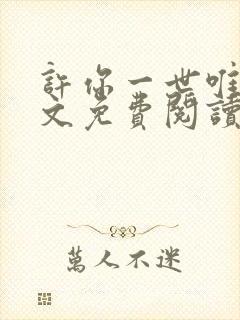 許你一世唯
文免費閱讀
萬人不迷